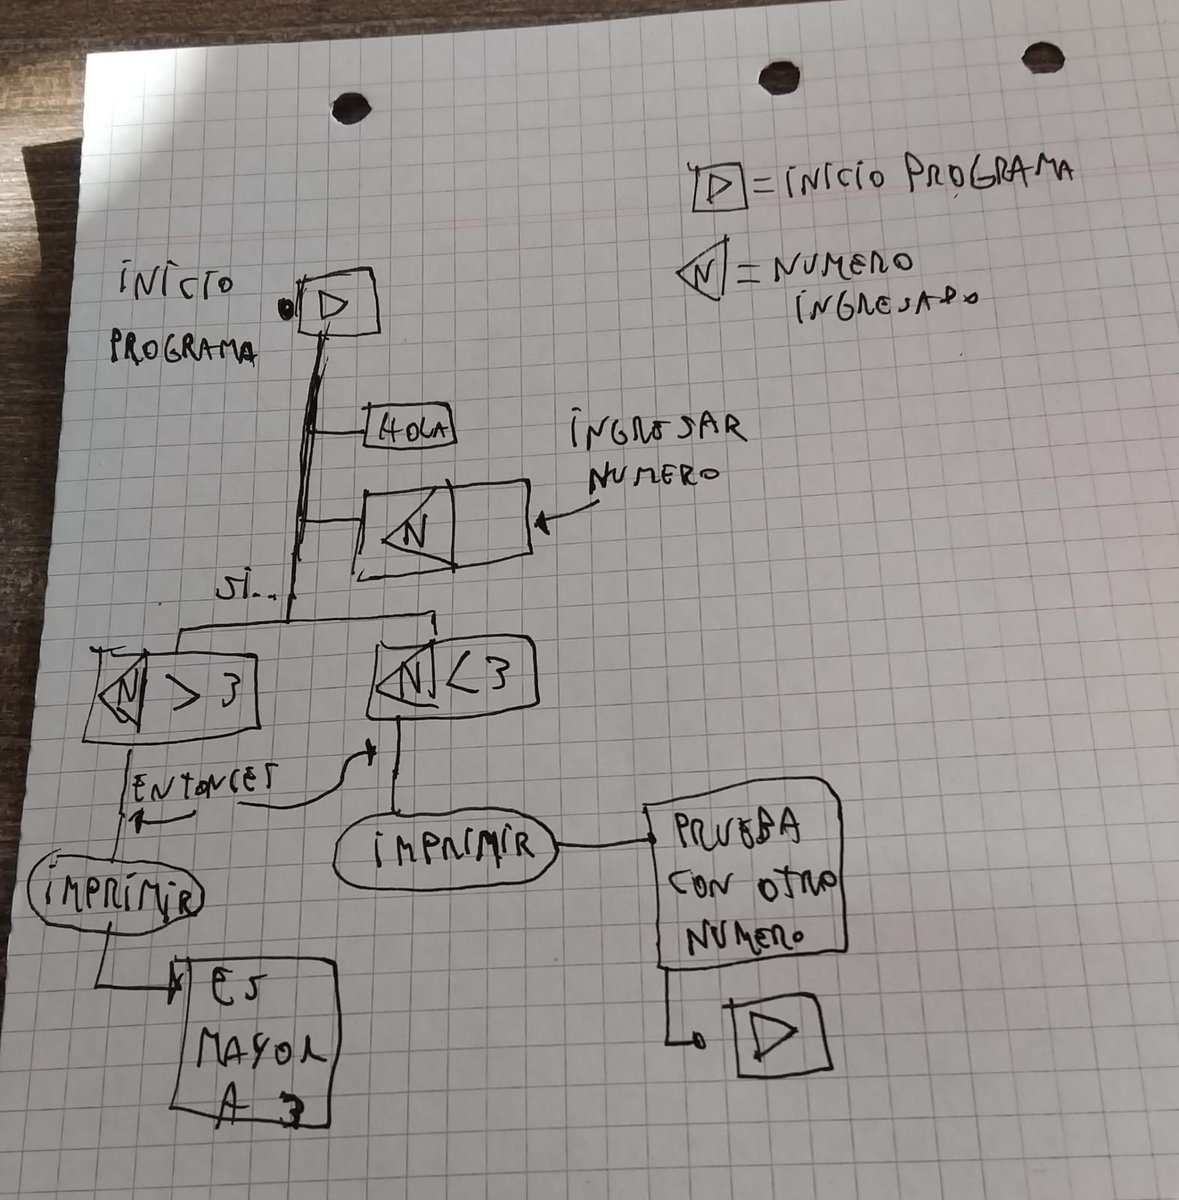 ▷ = INICIO PROGRAMA
N = NUMERO
INGRESADO
INICIO
PROGRAMA
HOLA
INGRESAR
NUMERO
N
SI...
N > 3
N < 3
ENTONCES
IMPRIMIR
IMPRIMIR
PRUEBA
CON OTRO
NUMERO
ES
MAYOR
A 3